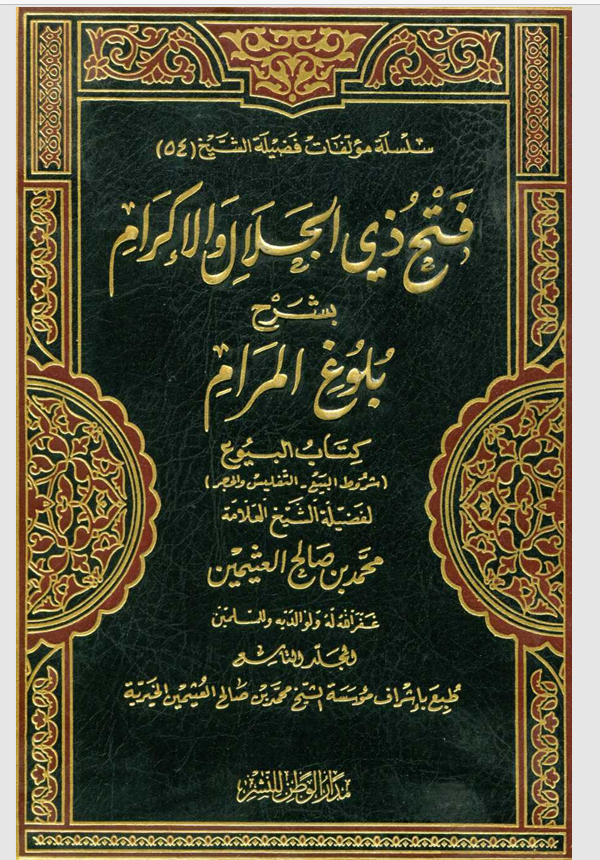 سلسلة مؤلفات فضيلة الشيخ (٥٤)
فَتْحُ ذِي الجَلَالِ وَالإِكْرَامِ
بِشَرْحِ
بُلُوغِ المَرَامِ
كِتَابُ البُيُوعِ
(شُرُوط البَيْع - التَّفْلِيس وَالحَجر)
لفَضِيلَة الشَّيْخ العَلَّامَة
محمَّد بن صَالح العثيمين
غَفَرَ اللهُ لَهُ وَلوَالدَيْه وَللمُسْلِمِيْن
المجلد التاسع
طُبِعَ بِإشْرَاف مُؤسَّسَة الشَّيْخ مُحمَّد بْن صَالِح العُثَيْمين الخَيْريَّة
مَدَارُ الوَطَن لِلنَّشْر